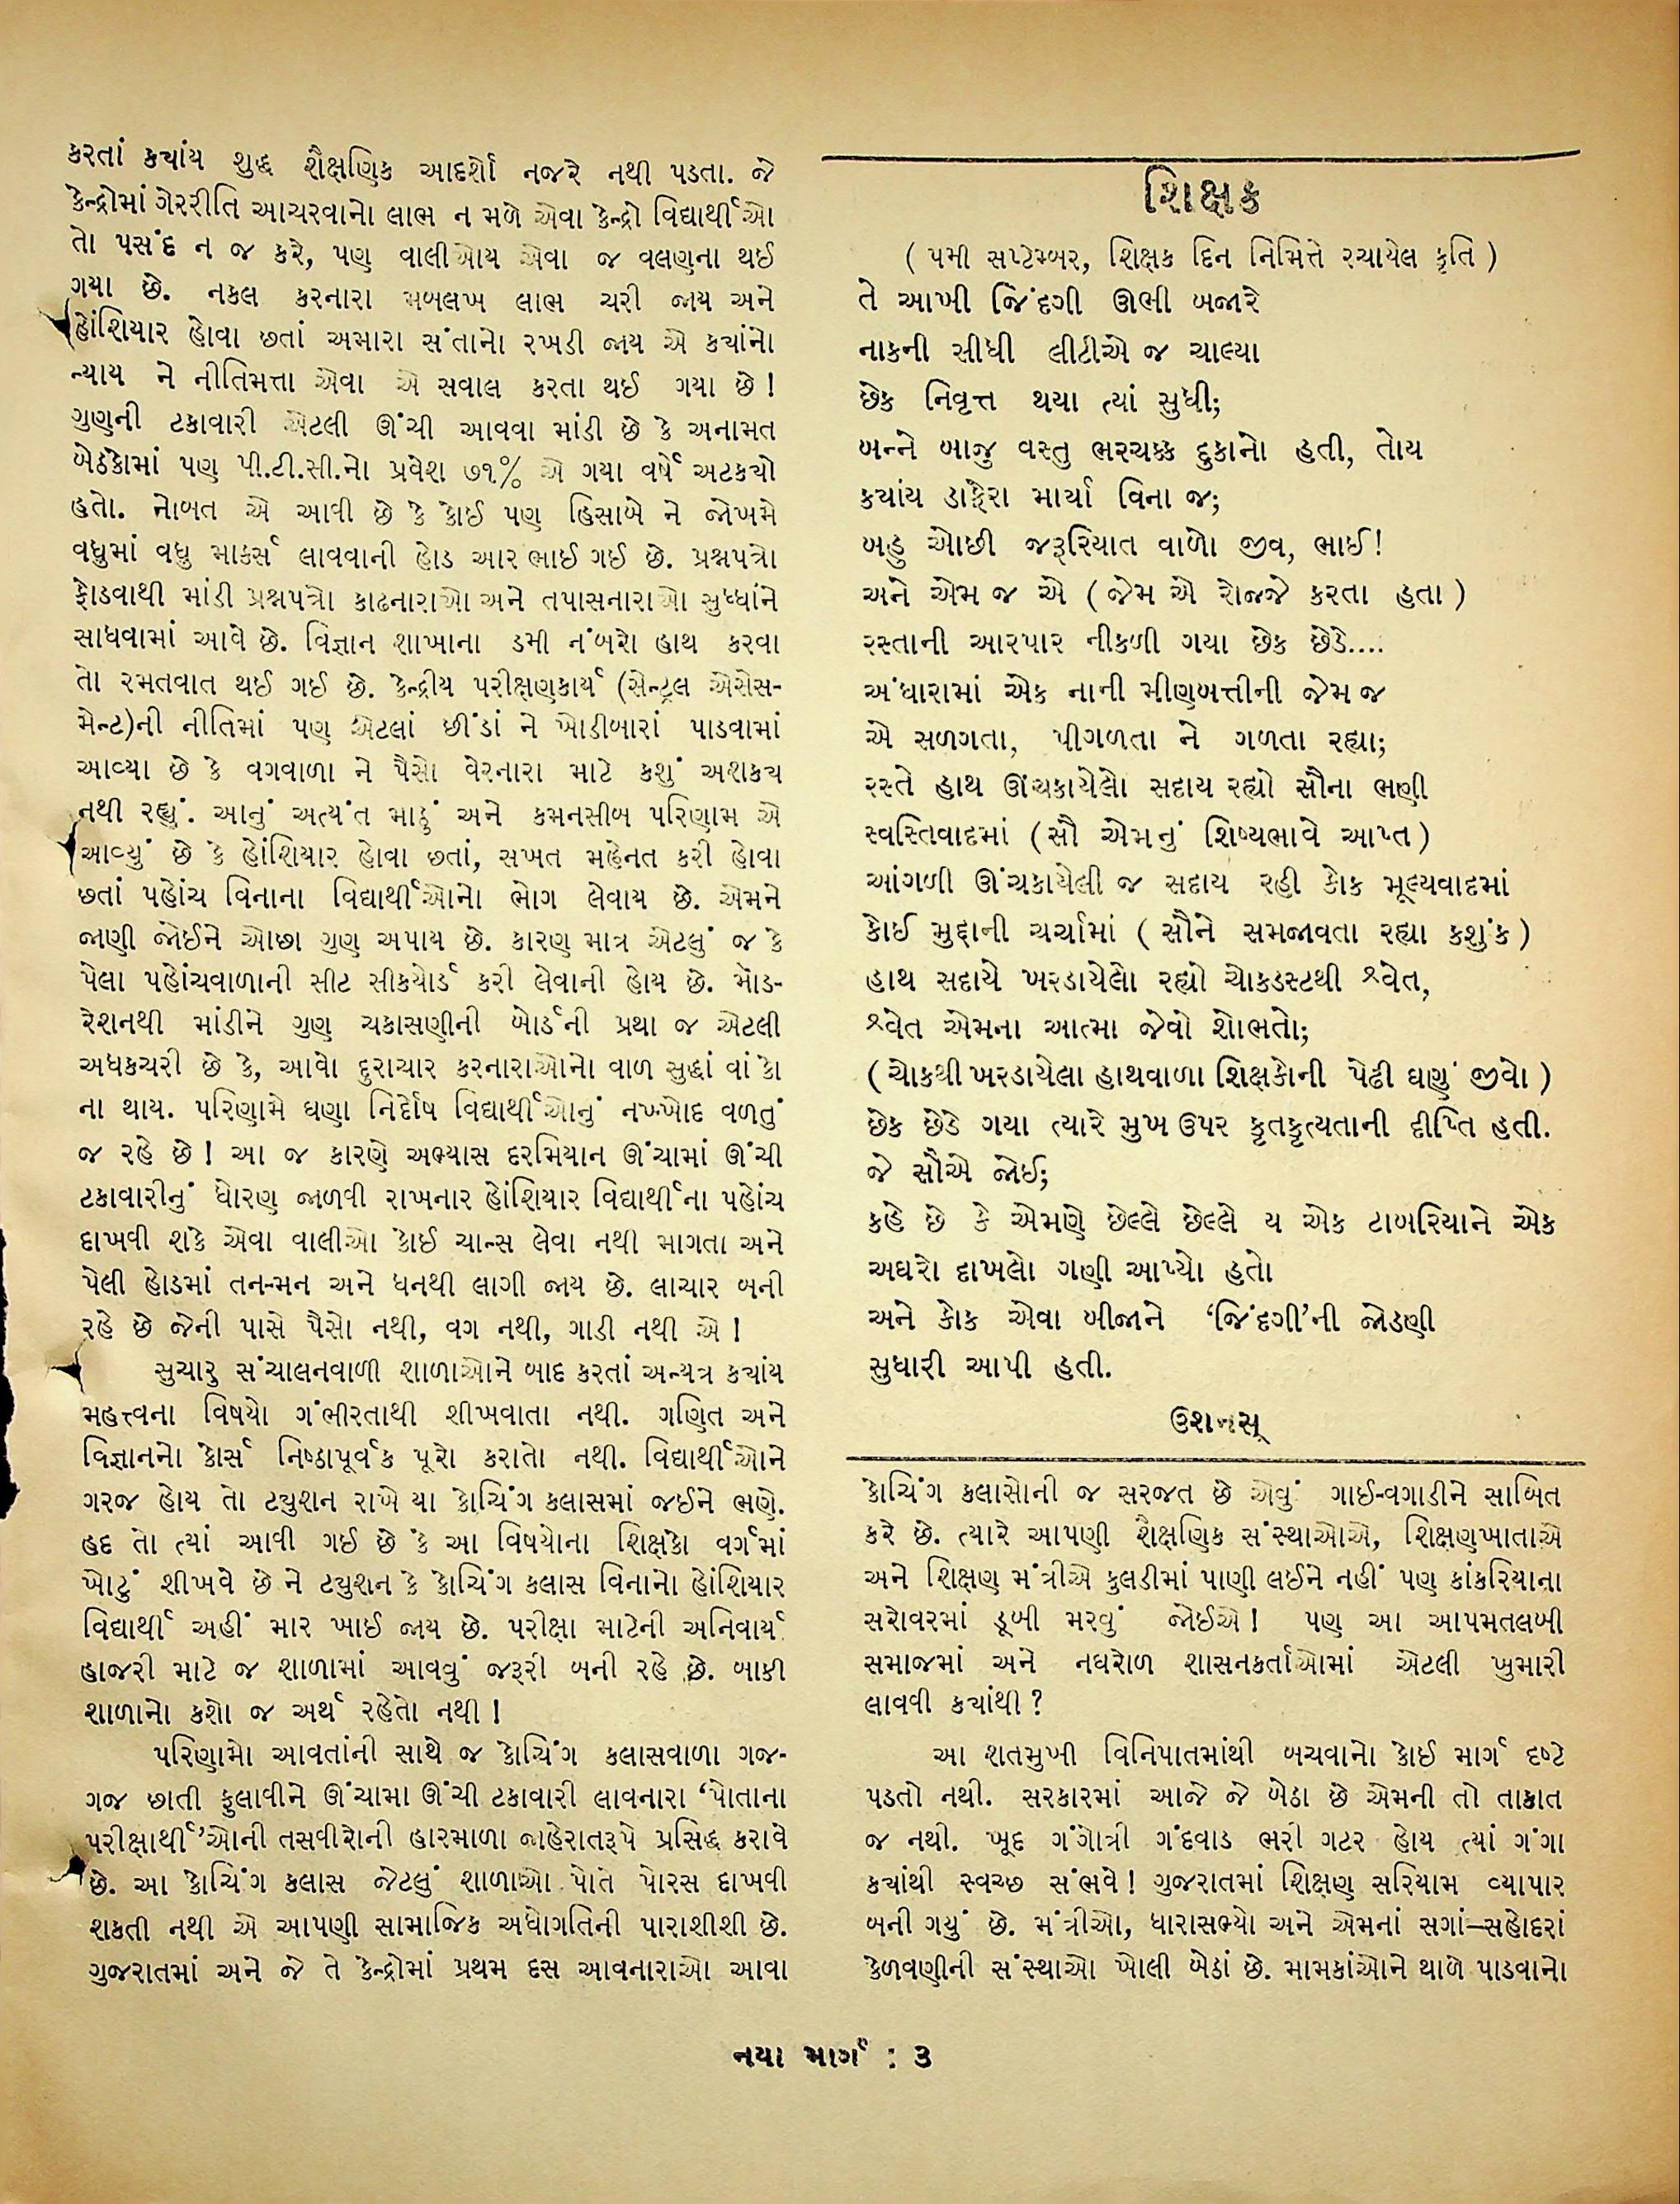 કરતાં ક્યાંય શુદ્ધ શૈક્ષણિક આદર્શો નજરે નથી પડતા. જે
કેન્દ્રોમાં ગેરરીતિ આચરવાનો લાભ ન મળે એવા કેન્દ્રો વિદ્યાર્થીઓ
તો પસંદ ન જ કરે, પણ વાલીઓય એવા જ વલણના થઈ
ગયા છે. નકલ કરનારા મબલખ લાભ ચરી જાય અને
હોંશિયાર હોવા છતાં અમારા સંતાનો રખડી જાય એ ક્યાંનો
ન્યાય ને નીતિમત્તા એવા એ સવાલ કરતા થઈ ગયા છે!
ગુણની ટકાવારી એટલી ઊંચી આવવા માંડી છે કે અનામત
બેઠકોમાં પણ પી.ટી.સી.નો પ્રવેશ ૭૧% એ ગયા વર્ષે અટક્યો
હતો. નોબત એ આવી છે કે કોઈ પણ હિસાબે ને જોખમે
વધુમાં વધુ માર્ક્સ લાવવાની હોડ આરંભાઈ ગઈ છે. પ્રશ્નપત્રો
ફોડવાથી માંડી પ્રશ્નપત્રો કાઢનારાઓ અને તપાસનારાઓ સુધ્ધાંને
સાધવામાં આવે છે. વિજ્ઞાન શાખાના ડમી નંબરો હાથ કરવા
તો રમતવાત થઈ ગઈ છે. કેન્દ્રીય પરીક્ષણકાર્ય (સેન્ટ્રલ એસેસ-
મેન્ટ)ની નીતિમાં પણ એટલાં છીંડાં ને ખોડીબારાં પાડવામાં
આવ્યા છે કે વગવાળા ને પૈસો વેરનારા માટે કશું અશક્ય
નથી રહ્યું. આનું અત્યંત માઠું અને કમનસીબ પરિણામ એ
આવ્યું છે કે હોંશિયાર હોવા છતાં, સખત મહેનત કરી હોવા
છતાં પહોંચ વિનાના વિદ્યાર્થીઓનો ભોગ લેવાય છે. એમને
જાણી જોઈને ઓછા ગુણ અપાય છે. કારણ માત્ર એટલું જ કે
પેલા પહોંચવાળાની સીટ સીક્યોર્ડ કરી લેવાની હોય છે. મોડ-
રેશનથી માંડીને ગુણ ચકાસણીની બોર્ડની પ્રથા જ એટલી
અધકચરી છે કે, આવો દુરાચાર કરનારાઓનો વાળ સુદ્ધાં વાંકો
ના થાય. પરિણામે ઘણા નિર્દોષ વિદ્યાર્થીઓનું નખ્ખોદ વળતું
જ રહે છે! આ જ કારણે અભ્યાસ દરમિયાન ઊંચામાં ઊંચી
ટકાવારીનું ધોરણ જાળવી રાખનાર હોંશિયાર વિદ્યાર્થીના પહોંચ
દાખવી શકે એવા વાલીઓ કોઈ ચાન્સ લેવા નથી માગતા અને
પેલી હોડમાં તન-મન અને ધનથી લાગી જાય છે. લાચાર બની
રહે છે જેની પાસે પૈસો નથી, વગ નથી, ગાડી નથી એ!
સુચારુ સંચાલનવાળી શાળાઓને બાદ કરતાં અન્યત્ર ક્યાંય
મહત્ત્વના વિષયો ગંભીરતાથી શીખવાતા નથી. ગણિત અને
વિજ્ઞાનનો કોર્સ નિષ્ઠાપૂર્વક પૂરો કરાતો નથી. વિદ્યાર્થીઓને
ગરજ હોય તો ટ્યુશન રાખે યા કોચિંગ કલાસમાં જઈને ભણે.
હદ તો ત્યાં આવી ગઈ છે કે આ વિષયોના શિક્ષકો વર્ગમાં
ખોટું શીખવે છે ને ટ્યુશન કે કોચિંગ કલાસ વિનાનો હોંશિયાર
વિદ્યાર્થી અહીં માર ખાઈ જાય છે. પરીક્ષા માટેની અનિવાર્ય
હાજરી માટે જ શાળામાં આવવું જરૂરી બની રહે છે. બાકી
શાળાનો કશો જ અર્થ રહેતો નથી!
પરિણામો આવતાંની સાથે જ કોચિંગ કલાસવાળા ગજ-
ગજ છાતી ફુલાવીને ઊંચામા ઊંચી ટકાવારી લાવનારા ‘પોતાના
પરીક્ષાર્થી’ઓની તસવીરોની હારમાળા જાહેરાતરૂપે પ્રસિદ્ધ કરાવે
છે. આ કોચિંગ કલાસ જેટલું શાળાઓ પોતે પોરસ દાખવી
શકતી નથી એ આપણી સામાજિક અધોગતિની પારાશીશી છે.
ગુજરાતમાં અને જે તે કેન્દ્રોમાં પ્રથમ દસ આવનારાઓ આવા
શિક્ષક
( ૫મી સપ્ટેમ્બર, શિક્ષક દિન નિમિત્તે રચાયેલ કૃતિ )
તે આખી જિંદગી ઊભી બજારે
નાકની સીધી લીટીએ જ ચાલ્યા
છેક નિવૃત્ત થયા ત્યાં સુધી;
બન્ને બાજુ વસ્તુ ભરચક્ક દુકાનો હતી, તોય
ક્યાંય ડાફેરા માર્યા વિના જ;
બહુ ઓછી જરૂરિયાત વાળો જીવ, ભાઈ!
અને એમ જ એ ( જેમ એ રોજ્જે કરતા હતા )
રસ્તાની આરપાર નીકળી ગયા છેક છેડે....
અંધારામાં એક નાની મીણબત્તીની જેમ જ
એ સળગતા, પીગળતા ને ગળતા રહ્યા;
રસ્તે હાથ ઊંચકાયેલો સદાય રહ્યો સૌના ભણી
સ્વસ્તિવાદમાં (સૌ એમનું શિષ્યભાવે આપ્ત)
આંગળી ઊંચકાયેલી જ સદાય રહી કોક મૂલ્યવાદમાં
કોઈ મુદ્દાની ચર્ચામાં ( સૌને સમજાવતા રહ્યા કશુંક )
હાથ સદાયે ખરડાયેલો રહ્યો ચોકડસ્ટથી શ્વેત,
શ્વેત એમના આત્મા જેવો શોભતો;
(ચોકથી ખરડાયેલા હાથવાળા શિક્ષકોની પેઢી ઘણું જીવો )
છેક છેડે ગયા ત્યારે મુખ ઉપર કૃતકૃત્યતાની દીપ્તિ હતી.
જે સૌએ જોઈ;
કહે છે કે એમણે છેલ્લે છેલ્લે ય એક ટાબરિયાને એક
અઘરો દાખલો ગણી આપ્યો હતો
અને કોક એવા બીજાને ‘જિંદગી’ની જોડણી
સુધારી આપી હતી.
ઉશનસ્
કોચિંગ કલાસોની જ સરજત છે એવું ગાઈ-વગાડીને સાબિત
કરે છે. ત્યારે આપણી શૈક્ષણિક સંસ્થાઓએ, શિક્ષણખાતાએ
અને શિક્ષણ મંત્રીએ કુલડીમાં પાણી લઈને નહીં પણ કાંકરિયાના
સરોવરમાં ડૂબી મરવું જોઈએ! પણ આ આપમતલબી
સમાજમાં અને નઘરોળ શાસનકર્તાઓમાં એટલી ખુમારી
લાવવી ક્યાંથી?
આ શતમુખી વિનિપાતમાંથી બચવાનો કોઈ માર્ગ દષ્ટે
પડતો નથી. સરકારમાં આજે જે બેઠા છે એમની તો તાકાત
જ નથી. ખૂદ ગંગોત્રી ગંદવાડ ભરી ગટર હોય ત્યાં ગંગા
ક્યાંથી સ્વચ્છ સંભવે! ગુજરાતમાં શિક્ષણ સરિયામ વ્યાપાર
બની ગયું છે. મંત્રીઓ, ધારાસભ્યો અને એમનાં સગાં–સહોદરાં
કેળવણીની સંસ્થાઓ ખોલી બેઠાં છે. મામકાંઓને થાળે પાડવાનો
નયા માર્ગ : ૩